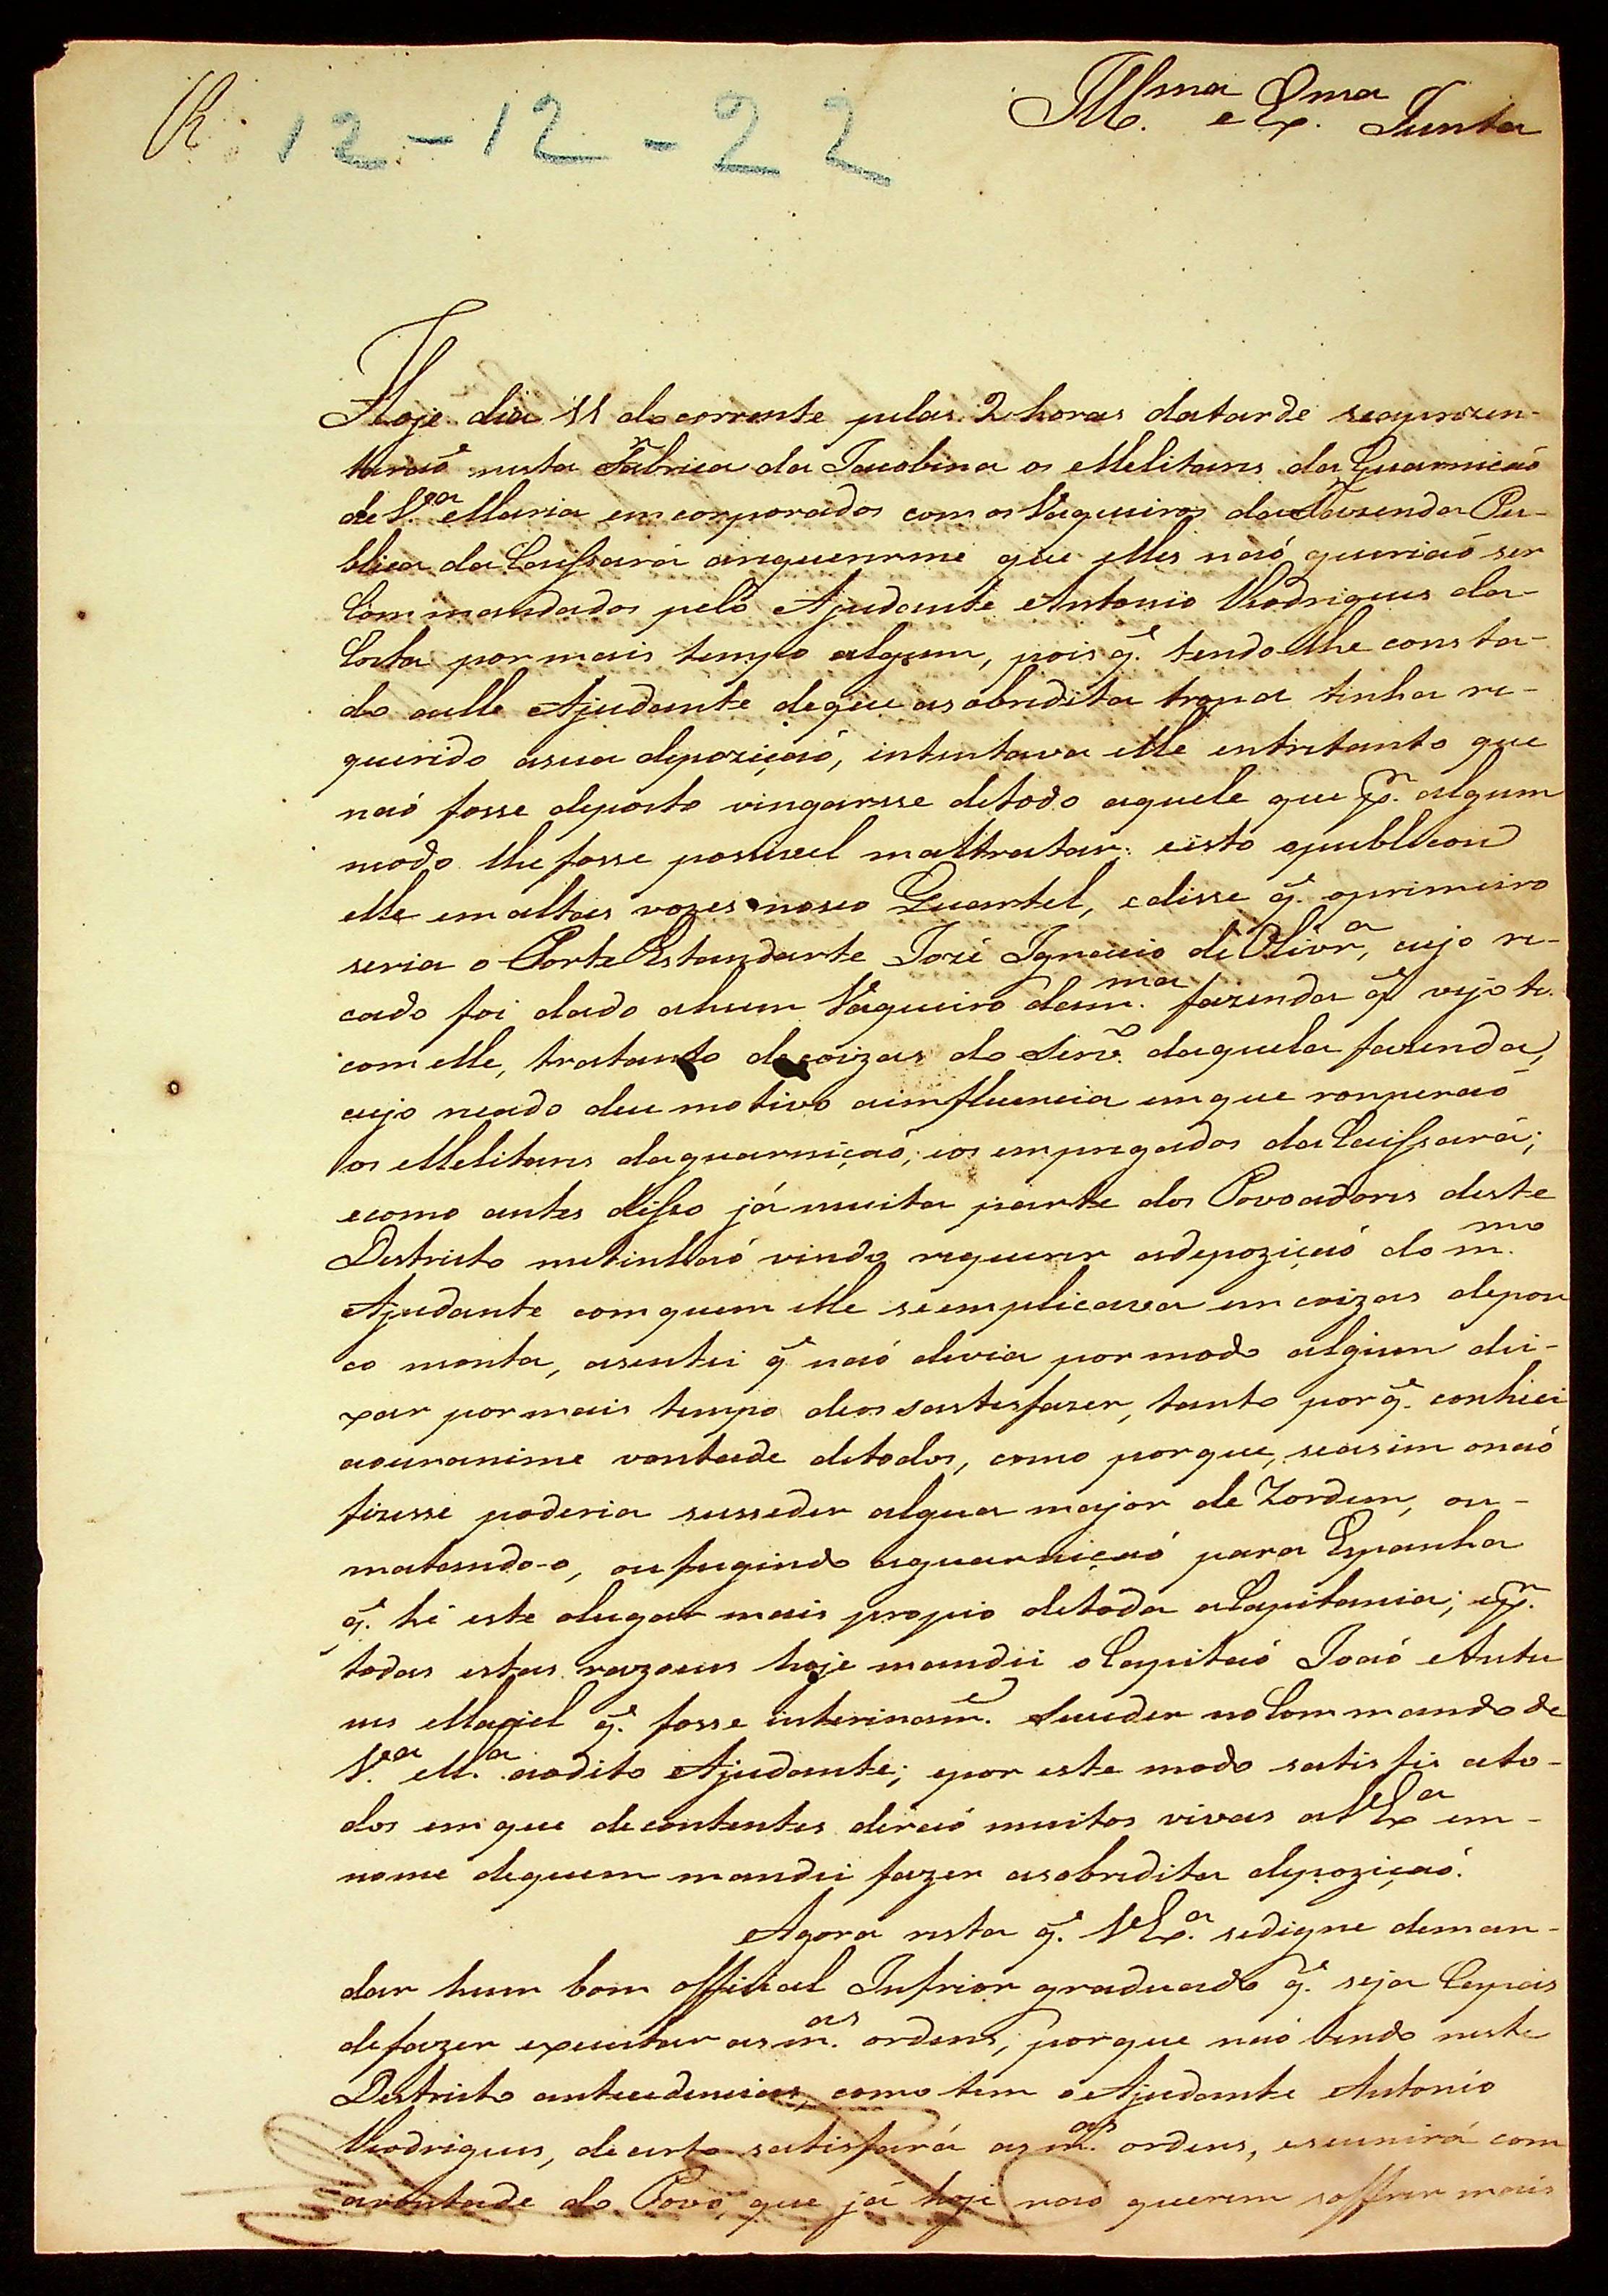 R. 12-12-22
Ill.ma e Ex.ma Junta
Hoje dia 11 do corrente pelas 2 horas datarde seaprezen-
taraõ nesta Fabrica da Jacobina os Melitares da Guarniçaõ
de V.a Maria emcorporados com os Vaqueiros da Fazenda Pu-
blica da Caissara que elles naõ queriaõ ser
Commandados pelo Ajudante Antonio Rodrigues da-
Costa por mais tempo algum, pois q.e tendolhe consta-
do aelle Ajudante deque asobredita tropa tinha re-
querido asua depoziçaõ, intentava elle entretanto que
naõ fosse deposto vingarsse detodo aquele que p.r algum
modo lhe fosse possivel maltratar: eisto opublicou
elle emaltas vozes noseo Quartel, edisse q.e oprimeiro
seria o Porta Estandarte Jozé Ignacio de Olivr.a, cujo re-
cado foi dado ahum Vaqueiro dam.ma fazenda q.e
comelle, tratando decoizas do Serv.o daquela fazenda,
cujo recado deu motivo ainfluencia emque romperaõ
os Melitares daguarniçaõ, eos empregados da Caissara;
ecomo antes disso já muita parte dos Povoadores deste
Destricto metinhaõ vindo requerer adepoziçaõ do m.mo
Ajudante comquem elle seemplicava em coizas depou
co monta, asentei q.e naõ devia por modo algum dei-
xar por mais tempo deos sastesfazer, tanto por q.e conheci
aounanime vontade detodos, como porque, seasim onaõ
fizesse poderia susseder algua major deZordem, ou-
matando-o, oufugindo aguarniçaõ para Espanha
q.e hé este olugar mais propio detoda aCapitania; ep.r
todas estas razoens hoje mandei oCapitaõ Joaõ Antu
nes Maciel q.e fosse interinam.e suceder noCommando de
V.a M.a aodito Ajudante; epor este modo satisfis ato-
dos emque decontentes deraõ muitos vivas aV Ex.a em-
nome dequem mandei fazer asobredita depoziçaõ.
Agora resta q.e V Ex.a sedigne deman-
dar hum bom official Inferior graduado q.e seja Capais
defazer executar asm.as ordens, porque naõ tendo neste
Destricto antecedencias, como tem oAjudante Antonio
Rodrigues, decerto satisfará asm.as ordens, eseunirá com
avontade do Povo, que já hoje naõ querem soffrer mais